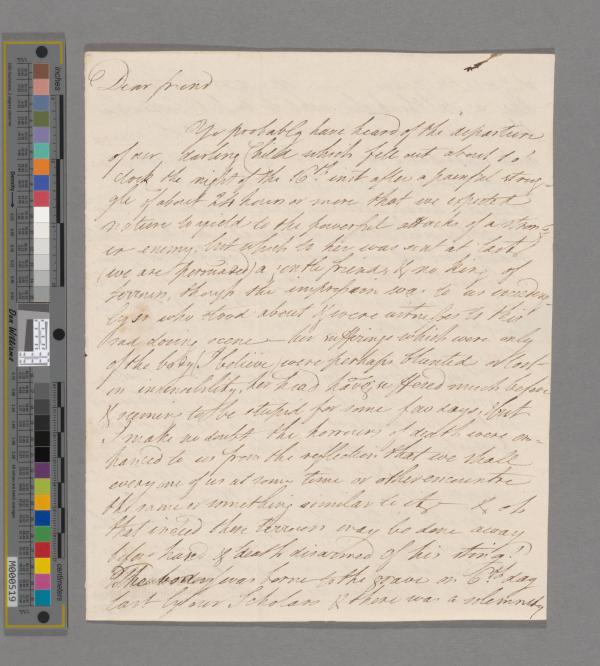 Dear friend
Ye probably have heard of the departure
of our darling Child which fell out about 10 o'
clock the night of the 16th inst after a painful strug-
gle of about 24 hours or more that we expected
nature to yield to the powerful attacks of a strong-
er enemy, but which to her was sent at last
(we are persuaded) a gentle friend, & no king of
terrors, though the impression was to us
who stood about & were witnesses to this
sad scene — her sufferings which were only
of the body I believe, were perhaps blunted or lost
in insensibility, her head having suffered much before
& seeming to be stupid for some few days, but
I make no doubt the horrors of death were en-
hanced to us from the reflection that we shall
every one of us at some time or other encounter
the same or something similar to it, & oh
that indeed these terrors may be done away
before hand & death disarmed of his sting!
The body was borne to the grave on 6th day
last by our Scholars & there was a solemnity
inches
centimeters
Density
Don Williams
M000519